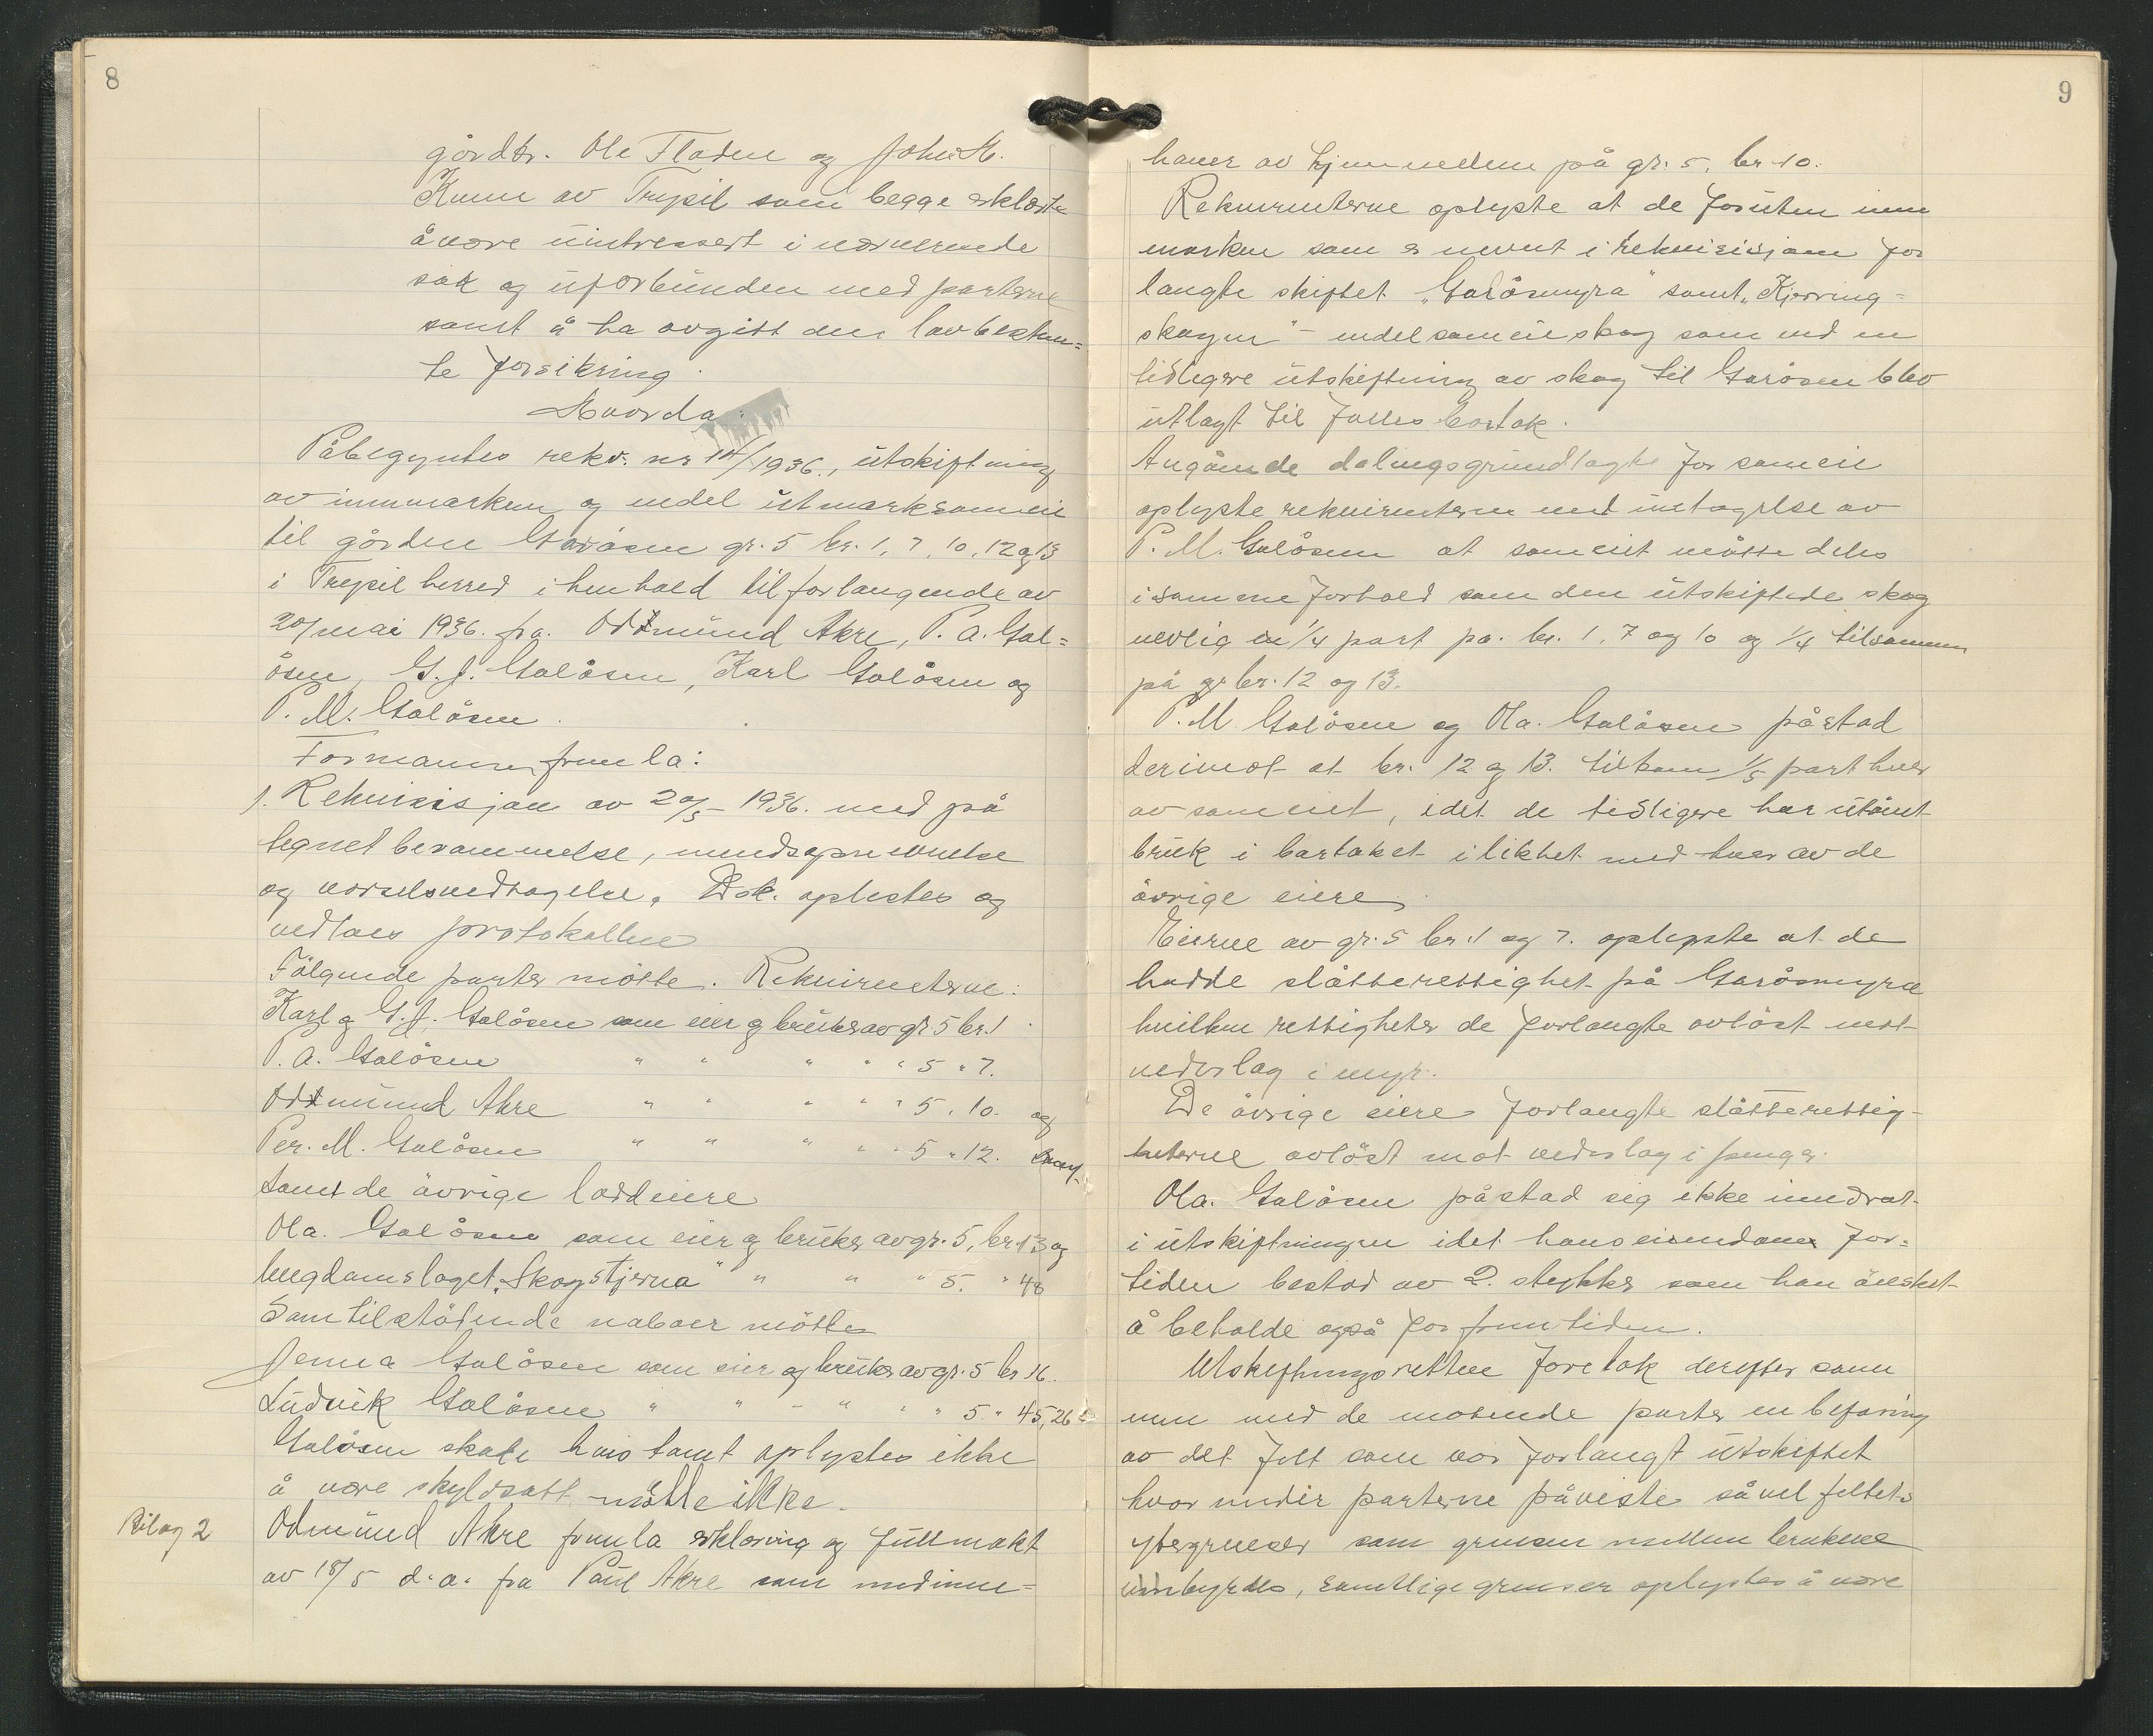 8
gårdbr. Ole Fladen og John M.
Kunn av Trysil som begge erklærte
å være uintressert i nærværende
sak og uforbunden med parterne
samt å ha avgitt den lovbestem=
te forsikring.
Hvorda:
Påbegyntes rekv. nr 14/1936., utskiftning
av innmarken og endel utmarksameie
til gården Galåsen gr. 5 br. 1, 7, 10, 12 og 13
i Trysil herred i henhold til forlangende av
20/mai 1936. fra. Oddmund Akre, P. A. Gal=
åsen, G. J. Galåsen, Karl Galåsen og
P. M. Galåsen.
Formannen fremla:
1. Rekvisisjon av 20/5 - 1936. med på
tegnet berammelse, mendsopnevnelse
og varselsvedtagelse. Dok. oplestes og
vedlaes protokollen
Følgende parter møtte. Rekvirenterne:
Karl og G. J. Galåsen som eier og bruker av gr. 5 br. 1.
P. A. Galåsen " " " " " 5 " 7.
Oddmund Akre " " " " " 5 " 10. og
Per. M. Galåsen " " " " " 5 " 12.
samt de øvrige loddeiere
Ola. Galåsen som eier og bruker av gr. 5, br. 13 og
ungdomslaget „Skogstjerna" " " " 5. " 48
Som tilstøtende naboer møtte
Jenna Galåsen som eier og bruker av gr. 5 br 16.
Ludvik Galåsen " " " " " 5 " 45, 26
Galåsen skole hvis tomt oplystes ikke
å være skyldsatt møtte ikke.
Bilag 2
Odmund Akre fremla erklæring og fullmakt
av 18/5 d. a. fra Paul Akre som medinne=
9
haver av hjemmelen på gr. 5, br. 10.
Rekvirenterne oplyste at de foruten inn
marken som er nevnt i rekvisisjonen for
langte skiftet „Galåsmyra" samt „Kjerring=
skogen" - endel sameieskog som ved en
tidligere utskiftning av skog til Galåsen blev
utlagt til felles bortak.
Angående delingsgrundlaget for sameie
oplyste rekvirenterne med undtagelse av
P. M. Galåsen at sameiet måtte deles
i samme forhold som den utskiftede skog
nevlig en 1/4 part på. br. 1, 7 og 10 og 1/4 tilsammen
på br. 12 og 13.
P. M. Galåsen og Ola. Galåsen påstod
derimot at br. 12 og 13. tilkom 1/5 part hver
av sameiet, idet de tidligere har utømt
bruk i bartaket i likhet med hver av de
øvrige eiere.
Eierne av gr. 5 br. 1 og 7. oplyste at de
hadde slåtterettighet på Galåsmyra
hvilken rettigheter de forlangte avløst mot
vederlag i myr.
De øvrige eiere forlangte slåtterettig-
heterne avløst mot vederlag i penger.
Ola. Galåsen påstod sig ikke inndratt
i utskiftningen idet hans eiendom for=
tiden bestod av 2. stykker som han ønsket
å beholde også for fremtiden.
Utskiftningsretten foretok derefter sam
men med de møtende parter en befaring
av det felt som var forlangt utskiftet
hvorunder parterne påviste såvel feltets
ytregrenser som grensen mellem brukene
innbyrdes, samtlige grenser oplystes å være